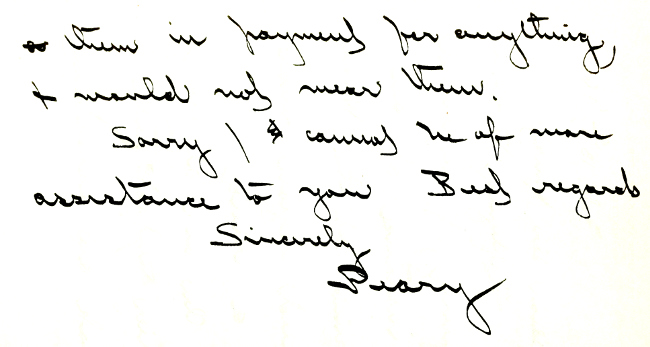 them in payment for anything,
+ would not wear them.
Sorry I cannot be of more
assistance to you Best regards
Sincerely
Peary